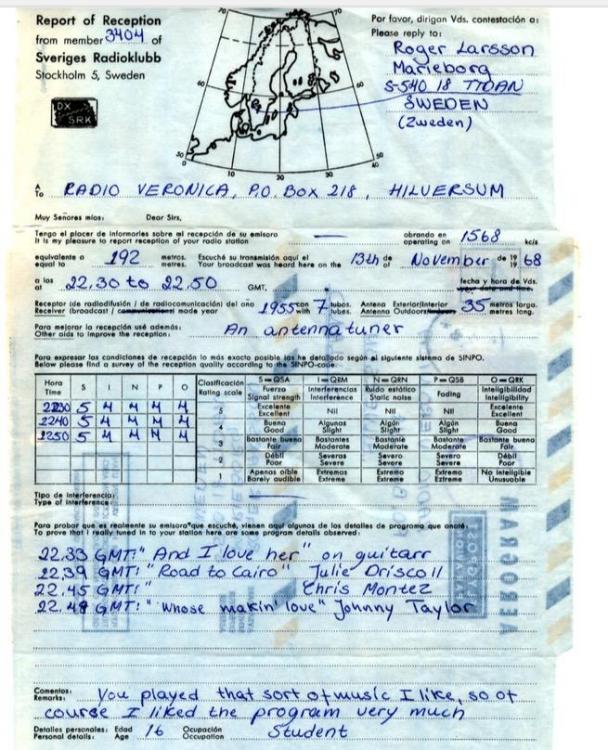 Report of Reception
from member 3404 of
Sveriges Radioklubb
Stockholm 5, Sweden
DX
SRK
10 20 30
60 60
50 50
10 20 30 40
Por favor, dirigan Vds. contestación a:
Please reply to:
Roger Larsson
Marieborg
S-540 18 TIDAN
SWEDEN
(Zweden)
A
To RADIO VERONICA, P.O. Box 218, HILVERSUM
Muy Señores mios: Dear Sirs,
Tengo el placer de informarles sobre mi recepción de su emisora obrando en
It is my pleasure to report reception of your radio station operating on 1568 kc/s
equivalente a metros. Escuché su transmisión aquí el de de 19
equal to 192 metres. Your broadcast was heard here on the 13th of November 19 68
a las fecha y hora de Vds.
at 22.30 to 22.50 GMT. your date and time.
Receptor (de radiodifusion / de radiocomunicación) del año con tubos. Antena Exterior/Interior metros larga.
Receiver (broadcast / communications) made year 1955 with 7 tubes. Antenna Outdoors 35 metres long.
Para mejorar la recepción usé además:
Other aids to improve the reception: An antennatuner
Para expresar las condiciones de recepción lo más exacto posible las he detallado según el siguiente sistema de SINPO.
Below please find a survey of the reception quality according to the SINPO-code.
Hora S I N P O Clasificación S=QSA I=QRM N=QRN P=QSB O=QRK
Time Rating scale Fuerza Interferencias Ruido estático Fading Inteligibilidad
Signal strength Interference Static noise Intelligibility
2230 5 4 4 4 4 5 Excelente Excellent Nil Nil Nil Excelente Excellent
2240 5 4 4 4 4 4 Buena Good Algunas Slight Algún Slight Algún Slight Buena Good
2250 5 4 4 4 4 3 Bastante buena Fair Bastantes Moderate Bastante Moderate Bastante Moderate Bastante buena Fair
2 Débil Poor Severas Severe Severo Severe Severo Severe Débil Poor
1 Apenas oíble Barely audible Extremas Extreme Extremo Extreme Extremo Extreme No inteligible Unusable
Tipo de interferencia:
Type of interference:
Para probar que es realmente su emisora que escuché, vienen aquí algunos de los detalles de programa que anoté:
To prove that I really tuned in to your station here are some program details observed:
22.33 GMT: "And I love her" on guitarr
22.39 GMT: "Road to Cairo" Julie Driscoll
22.45 GMT: " Chris Montez
22.48 GMT: "Whose makin' love" Johnny Taylor
AEROGRAM
Comentos:
Remarks: You played that sort of music I like, so of
course I liked the program very much
Detalles personales: Edad Ocupación
Personal details: Age 16 Occupation Student